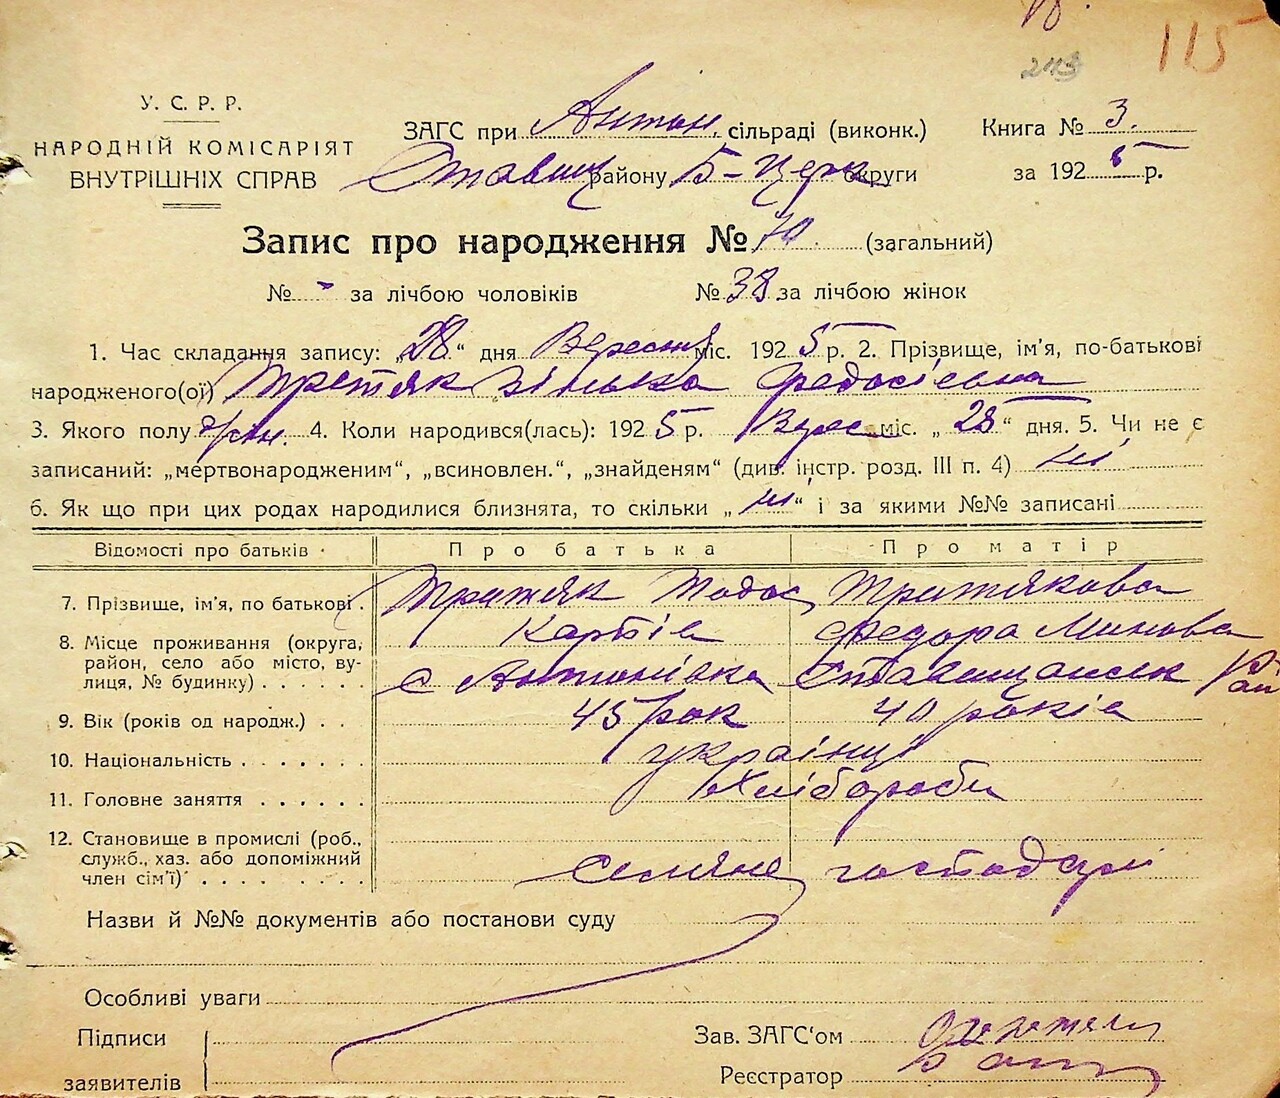 115
243
У. С. Р. Р.
НАРОДНІЙ КОМІСАРІЯТ
ВНУТРІШНІХ СПРАВ
ЗАГС при Антон. сільраді (виконк.)
Ставищ району Б-Церк округи
Книга № 3.
за 1925 р.
Запис про народження № 70. (загальний)
№ - за лічбою чоловіків № 38 за лічбою жінок
1. Час складання запису: „28“ дня Вересня міс. 1925 р. 2. Прізвище, ім'я, по-батькові
народженого(ої) Третяк Зінька Федосієвна
3. Якого полу жін. 4. Коли народився(лась): 1925 р. Верес міс. „28“ дня. 5. Чи не є
записаний: „мертвонародженим“, „всиновлен.“, „знайденям“ (див. інстр. розд. III п. 4) ні
6. Як що при цих родах народилися близнята, то скільки „ні“ і за якими №№ записані
Відомості про батьків Про батька Про матір
7. Прізвище, ім'я, по батькові. Третяк Тодос Третякова
Карпів Федора Минова
8. Місце проживання (округа, район, село або місто, вулиця, № будинку) с Антонівка Ставищанськ Рай
9. Вік (років од народж.) 45 рок 40 років
10. Національність українці
11. Головне заняття Хлібороби
12. Становище в промислі (роб., служб., хаз. або допоміжний член сім'ї) селяне господарі
Назви й №№ документів або постанови суду
Особливі уваги
Підписи
заявителів
Зав. ЗАГС'ом
Реєстратор